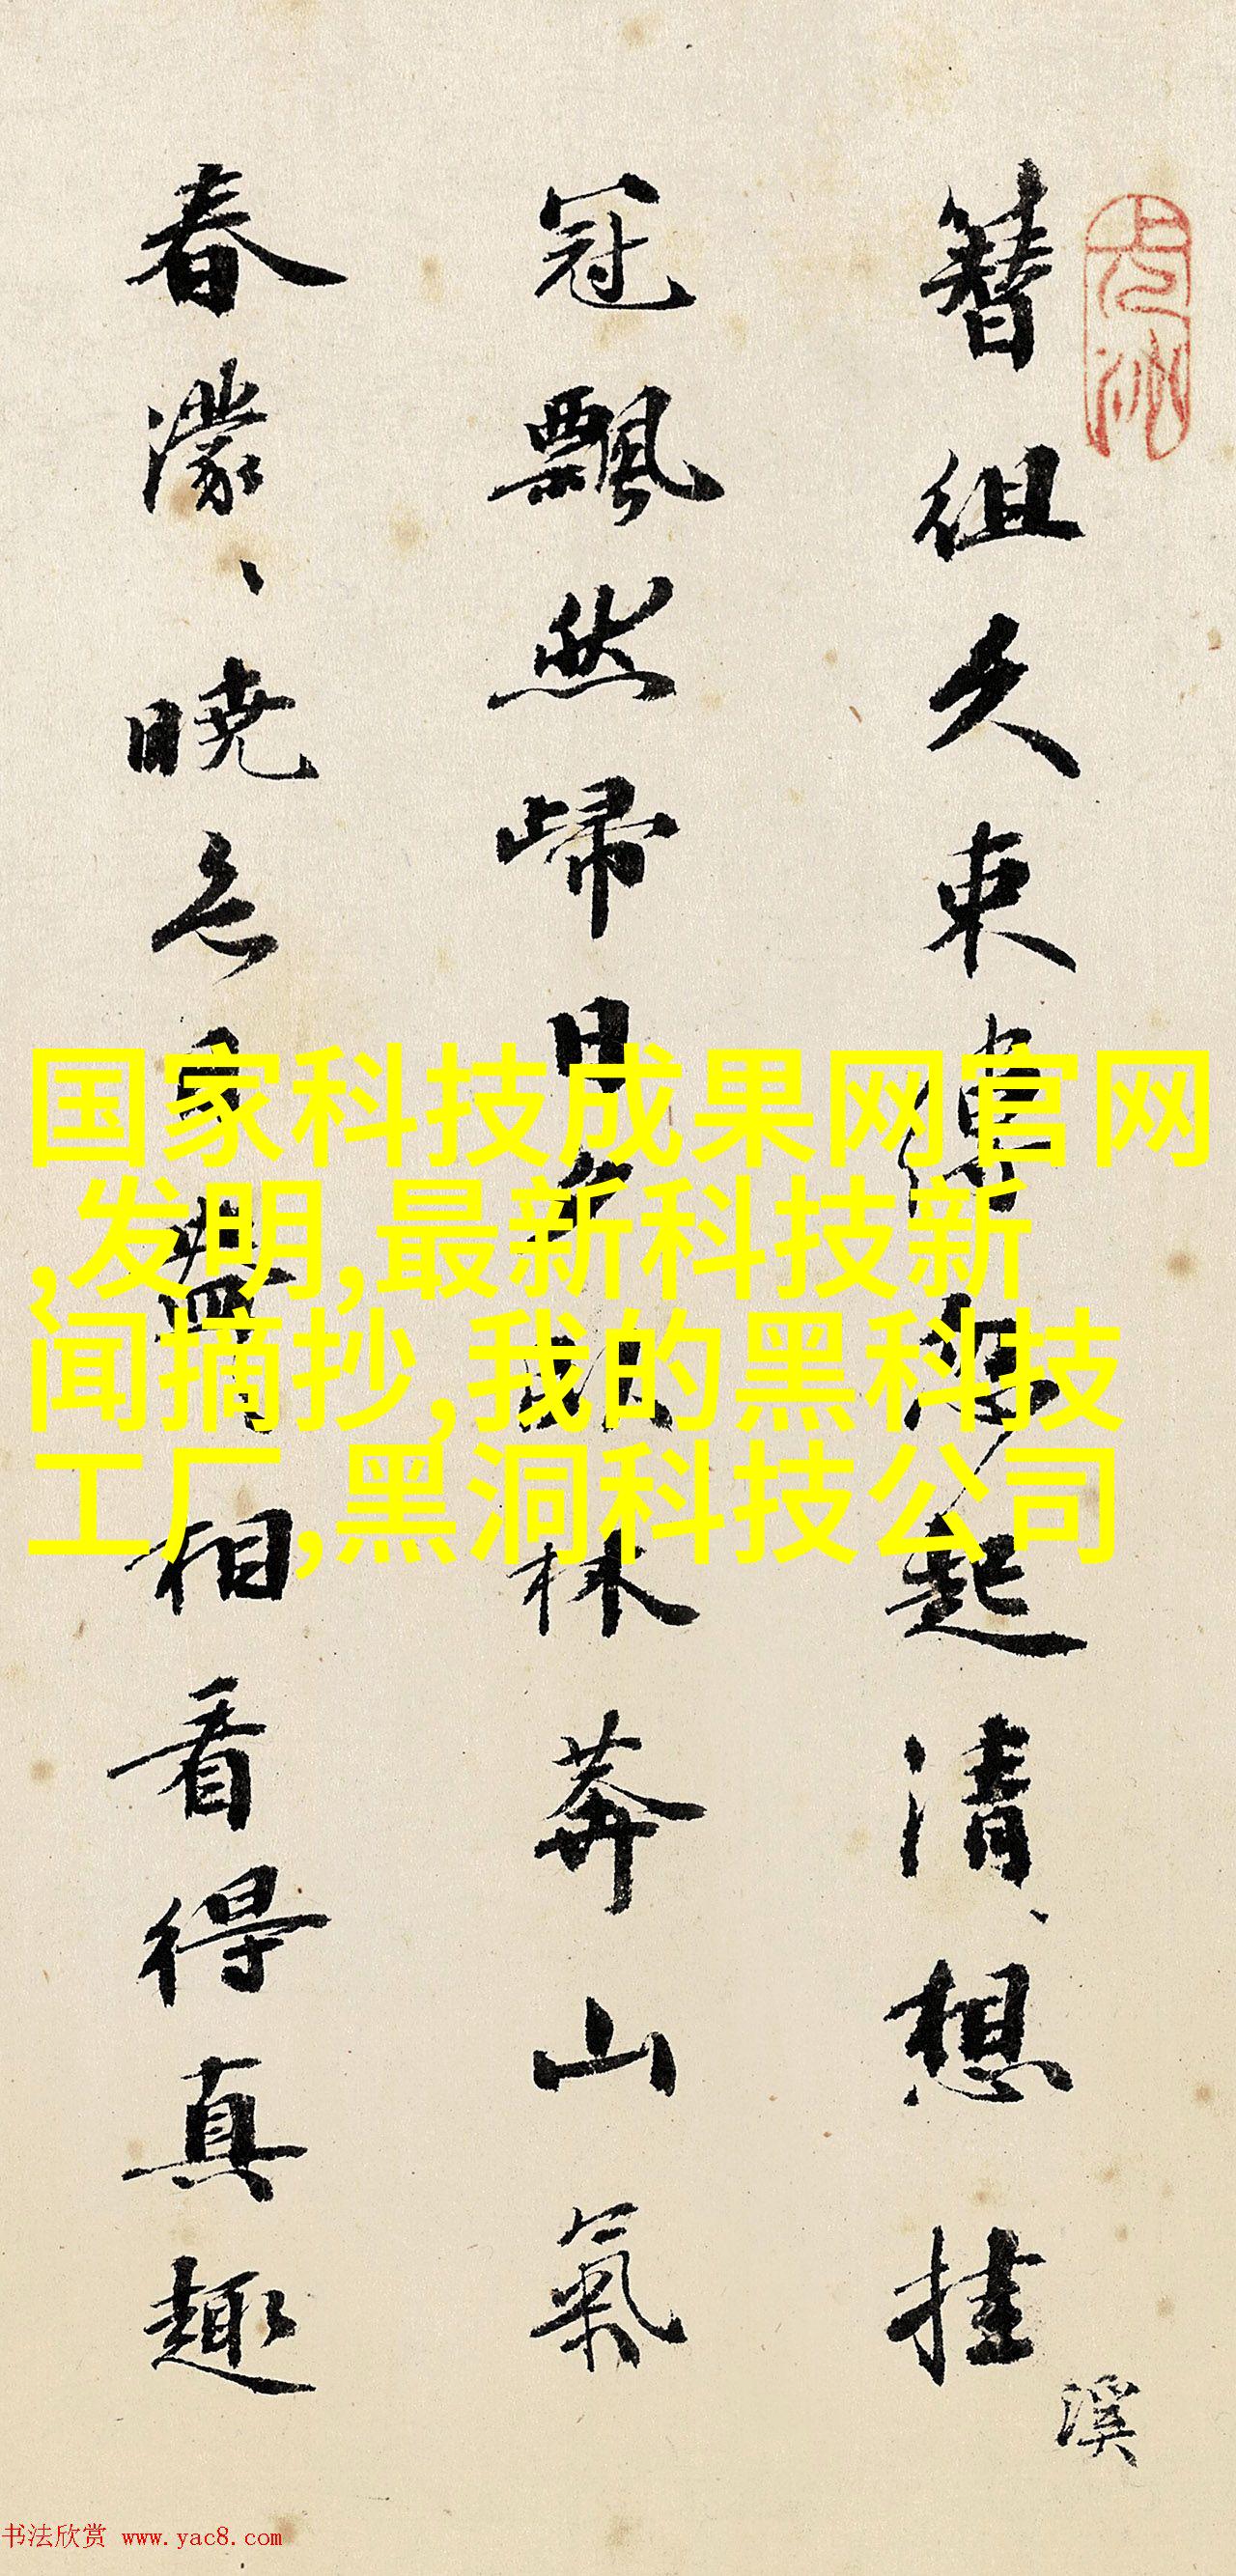 簪组久束缚起清想挂
冠飘然歸日林莽山氣
春濛、曉色相看得真趣
溪
国家科技成果网官网
,发明,最新科技新
闻摘抄,我的黑科技
工厂,黑洞科技公司
书法欣赏 www.yac8.com